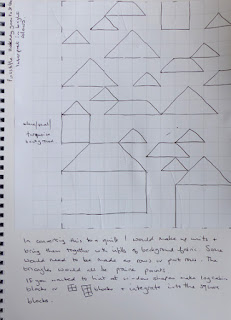 interpret in bright
colours.
turquoise
background
In converting this to a quilt I would make up units +
bring them together with infills of background fabric. Some
would need to be made as rows or part rows. The
triangles would all be prairie points
If you wanted to hint at window shapes make log cabin
blocks or blocks + integrate into the square
blocks.